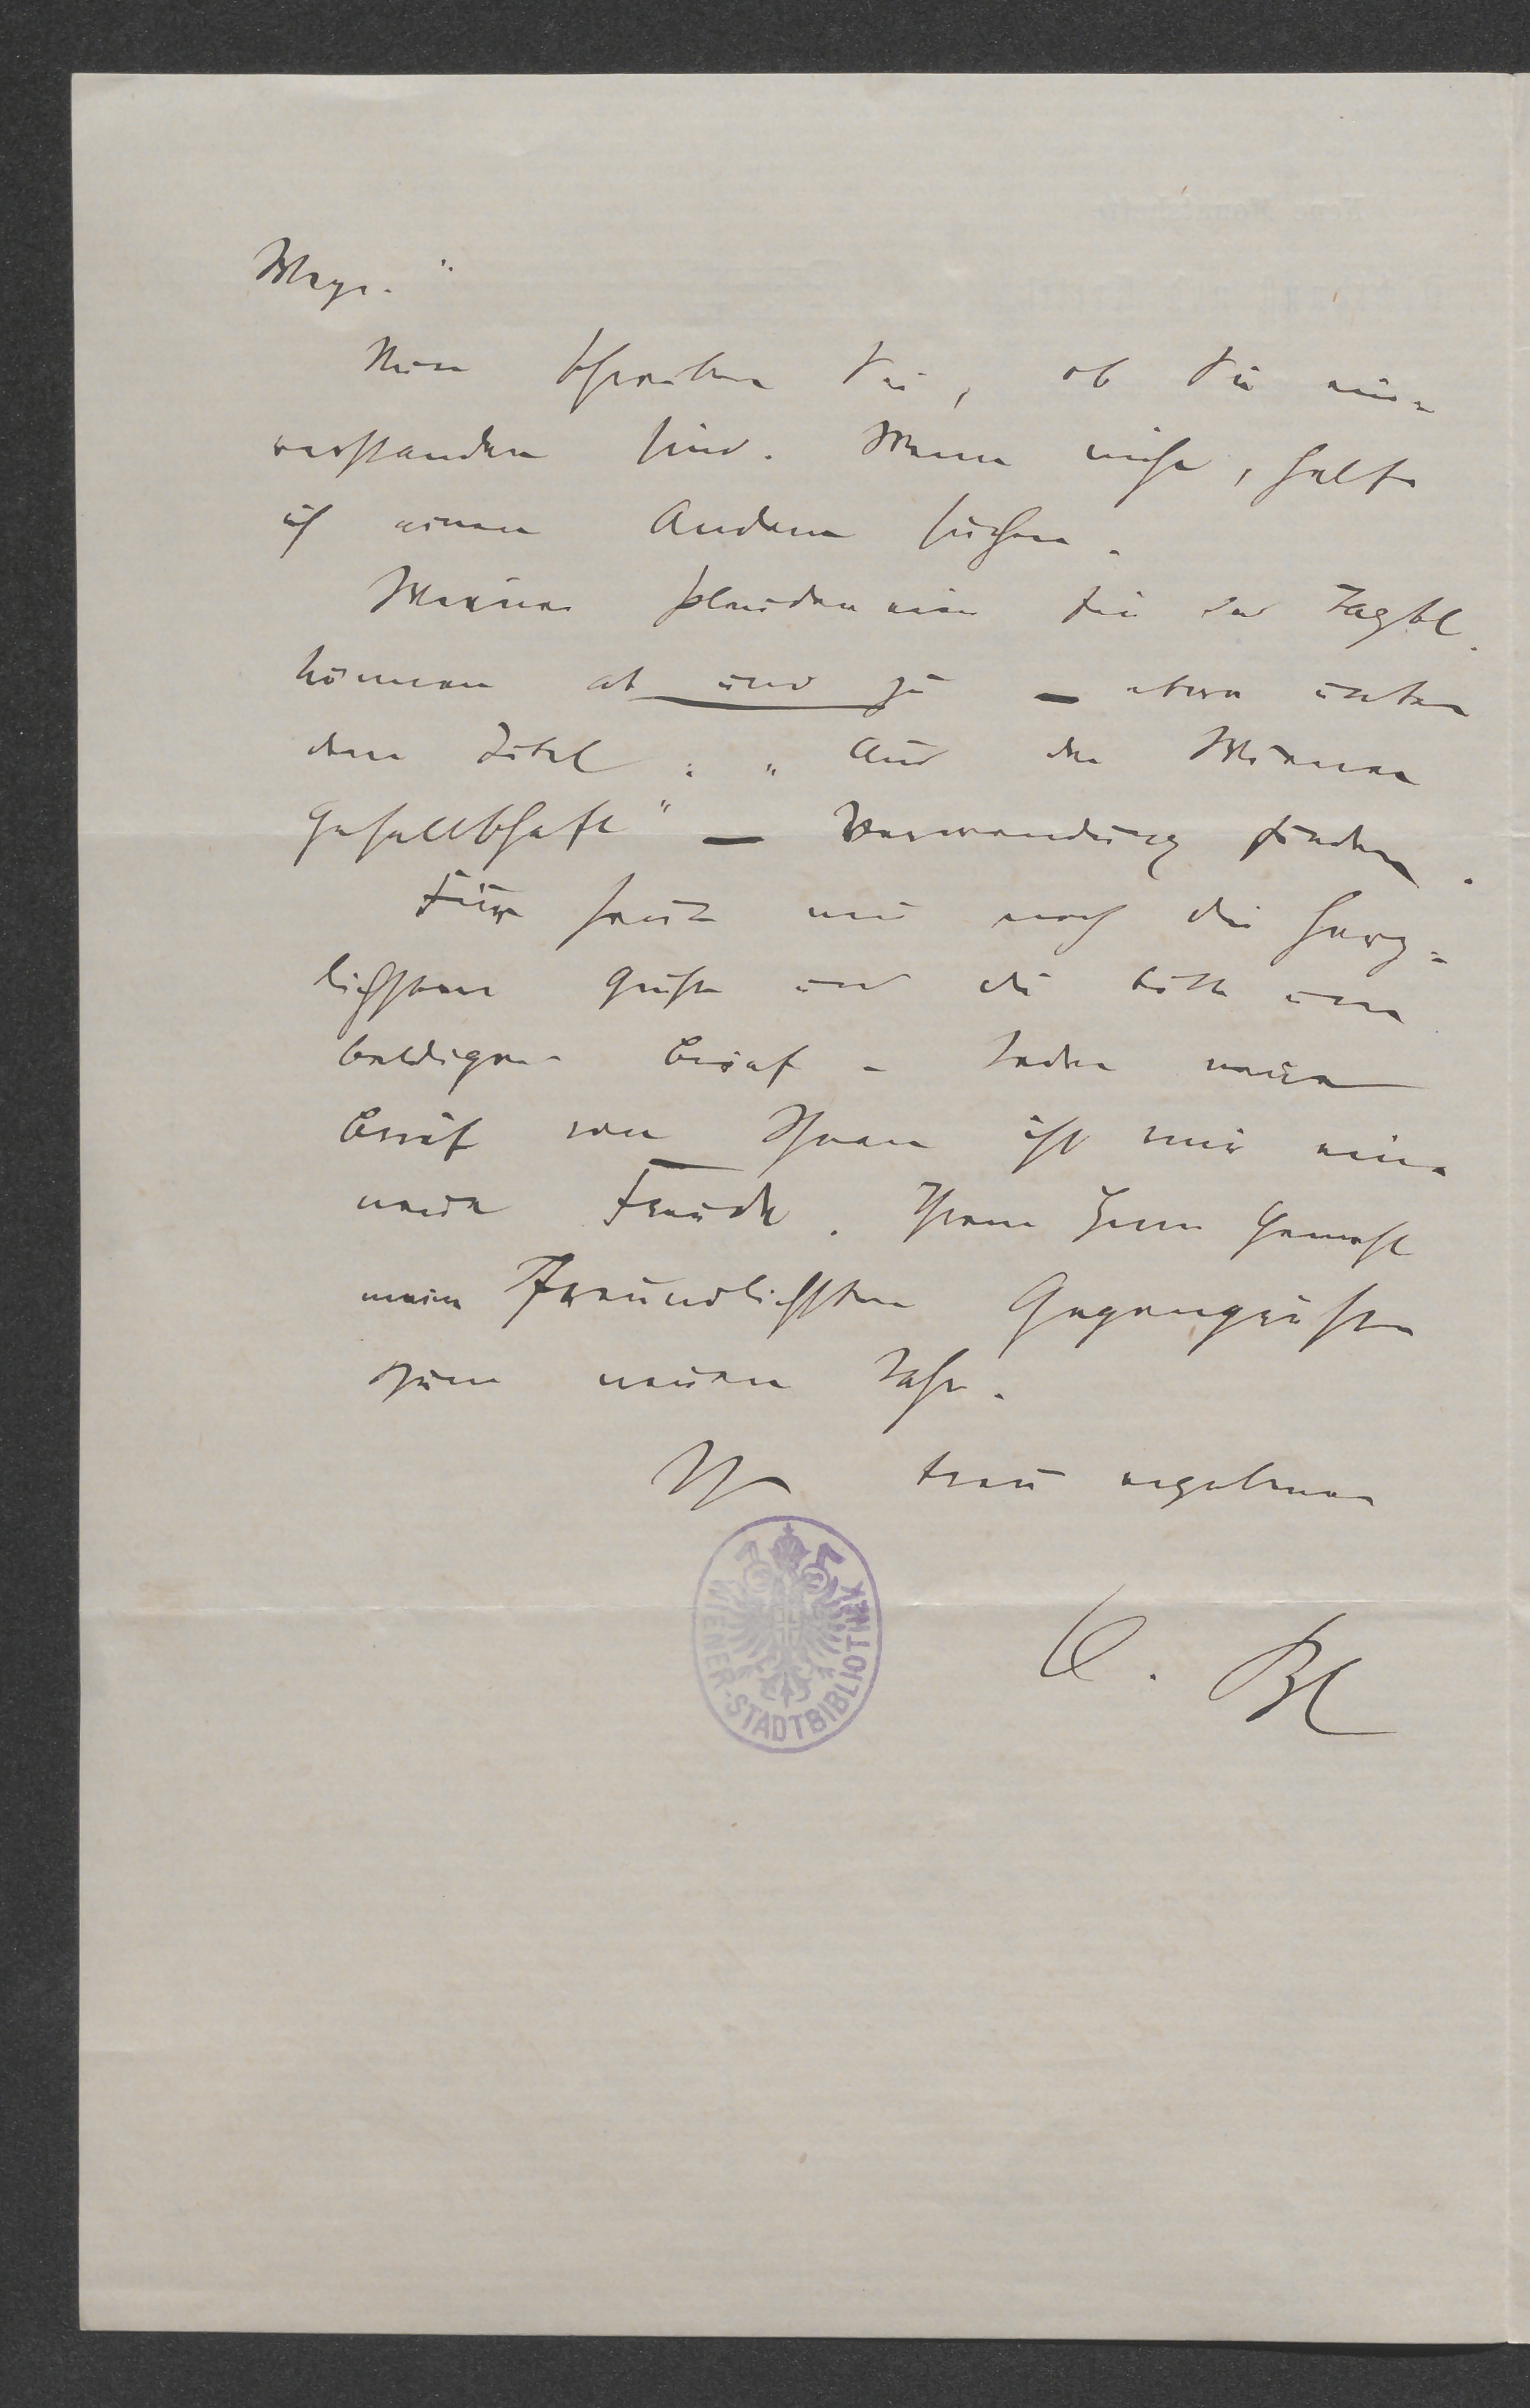 Wege."
Nun schreiben Sie, ob Sie ein-
verstanden sind. Wenn nicht, helfe
ich einen Andern suchen.
Wiener Plaudereien für das Tagbl.
können ab und zu – etwa unter
dem Titel: „Aus der Wiener
Gesellschaft" – Verwendung finden.
Für heute nur noch die herz-
lichsten Grüße und die Bitte um
baldigen Brief – Jeder neue
Brief von Ihnen ist mir eine
neue Freude. Ihrem Herrn Gemahl
meine freundlichsten Gegengrüße
zum neuen Jahr.
Ihr treu ergebener
O. Bl
WIENER-STADTBIBLIOTHEK